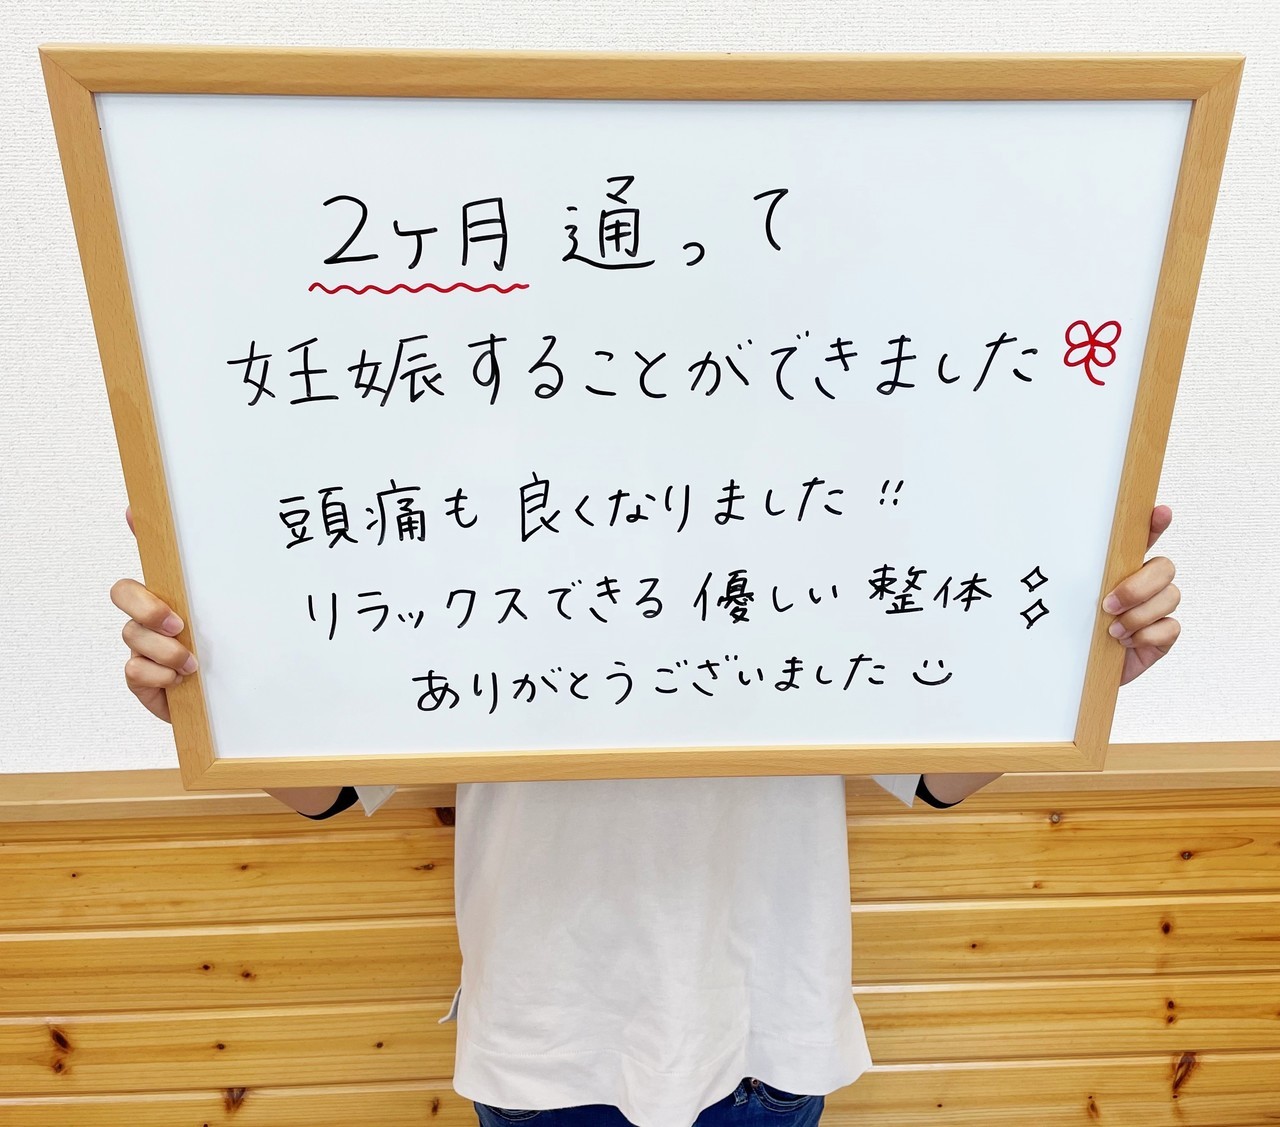 2ヶ月 通って
妊娠することができました
頭痛も 良くなりました!!
リラックスできる 優しい 整体
ありがとうございました